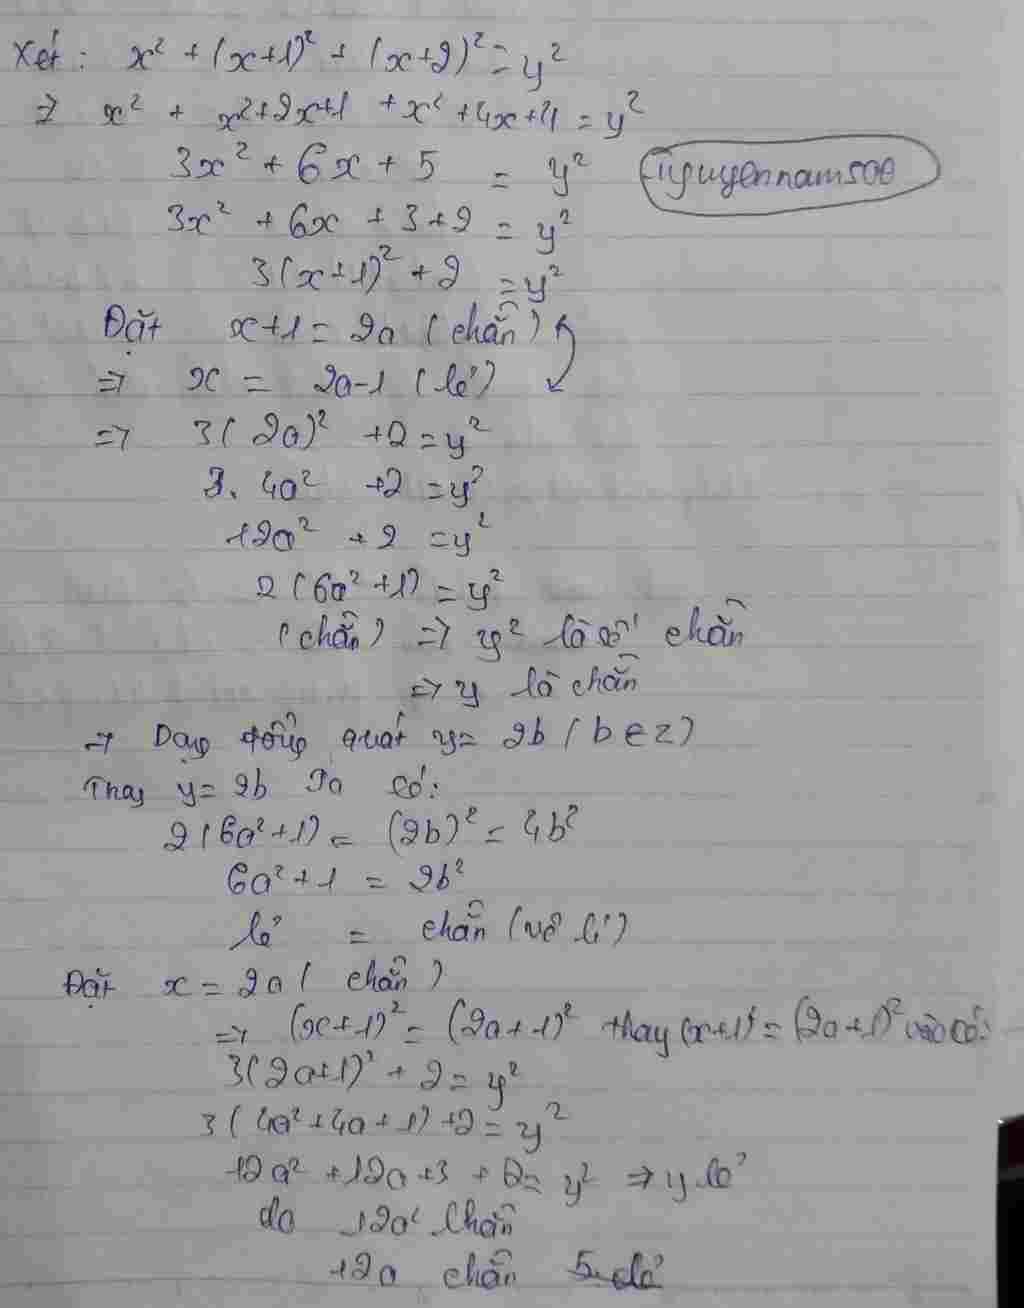 Xét : x² + (x+1)² + (x+2)² = y²
=> x² + x²+2x+1 + x² +4x+4 = y²
3x² + 6x + 5 = y²
nguyennam508
3x² + 6x + 3 + 2 = y²
3(x+1)² + 2 = y²
Đặt x+1 = 2a (chẵn)
=> x = 2a-1 (lẻ)
=> 3(2a)² +2 = y²
3. 4a² +2 = y²
12a² + 2 = y²
2(6a² +1) = y²
(chẵn) => y² là số chẵn
=> y là chẵn
=> Dạng tổng quát y = 2b (b∈Z)
Thay y = 2b Ta có:
2(6a²+1) = (2b)² = 4b²
6a² + 1 = 2b²
lẻ = chẵn (vô lí)
Đặt x = 2a (chẵn)
=> (x+1)² = (2a+1)² thay (x+1)² = (2a+1)² vào có:
3(2a+1)² + 2 = y²
3(4a²+4a+1) +2 = y²
12a² +12a+3 + 2 = y² => y lẻ
do 12a² chẵn
12a chẵn 5 lẻ